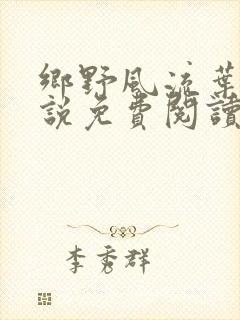 鄉野風流葉
說免費閱讀
李秀群